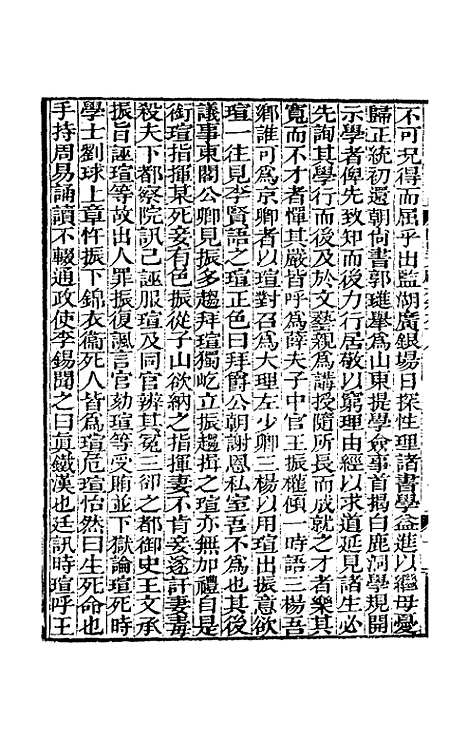 不可況得而屈乎出監湖廣銀場日探性理諸書學益進以繼母憂
歸正統初還朝尚書郭璡舉為山東提學僉事首揭白鹿洞學規開
示學者俾先致知而後力行居敬以窮理由經以求道延見諸生必
先詢其學行而後及於文藝親為講授隨所長而成就之才者樂其
寬而不才者憚其嚴皆呼為薛夫子中官王振權傾一時語三楊吾
鄉誰可為京卿者以瑄對召為大理左少卿三楊以用瑄出振意欲
瑄一往見李賢語之瑄正色曰拜爵公朝謝恩私室吾不為也其後
議事東閣公卿見振多趨拜瑄獨屹立振趨揖之瑄亦無加禮自是
銜瑄指揮某死妾有色振從子山欲納之指揮妻不肯妾遂訐妻毒
殺夫下都察院訊己誣服瑄及同官辨其冤三卻之都御史王文承
振旨誣瑄等故出人罪振復諷言官劾瑄等受賄並下獄論瑄死時
學士劉球上章忤振下錦衣衛死人皆為瑄危瑄怡然曰生死命也
手持周易誦讀不輟通政使李錫聞之曰真鐵漢也廷訊時瑄呼王